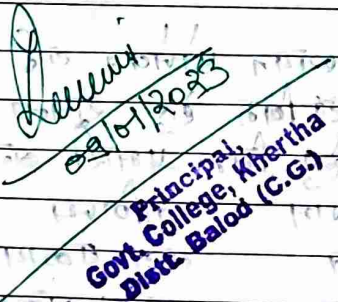 09/01/2023
Principal,
Govt. College, Khertha
Distt. Balod (C.G.)